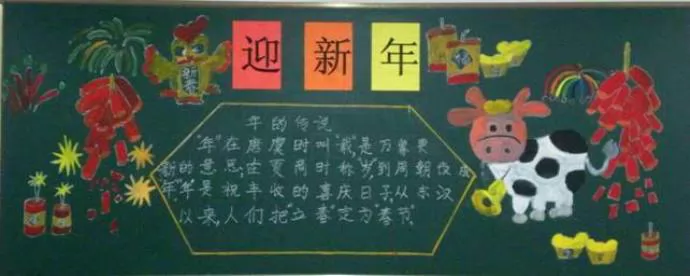 迎新年
年的传说
"年"在唐虞时叫"载"是万象更
新的意思,在夏商时称"岁"到周朝改成
年"年"是祝丰收的喜庆日子,从东汉
以来,人们把"立春"定为"春节"